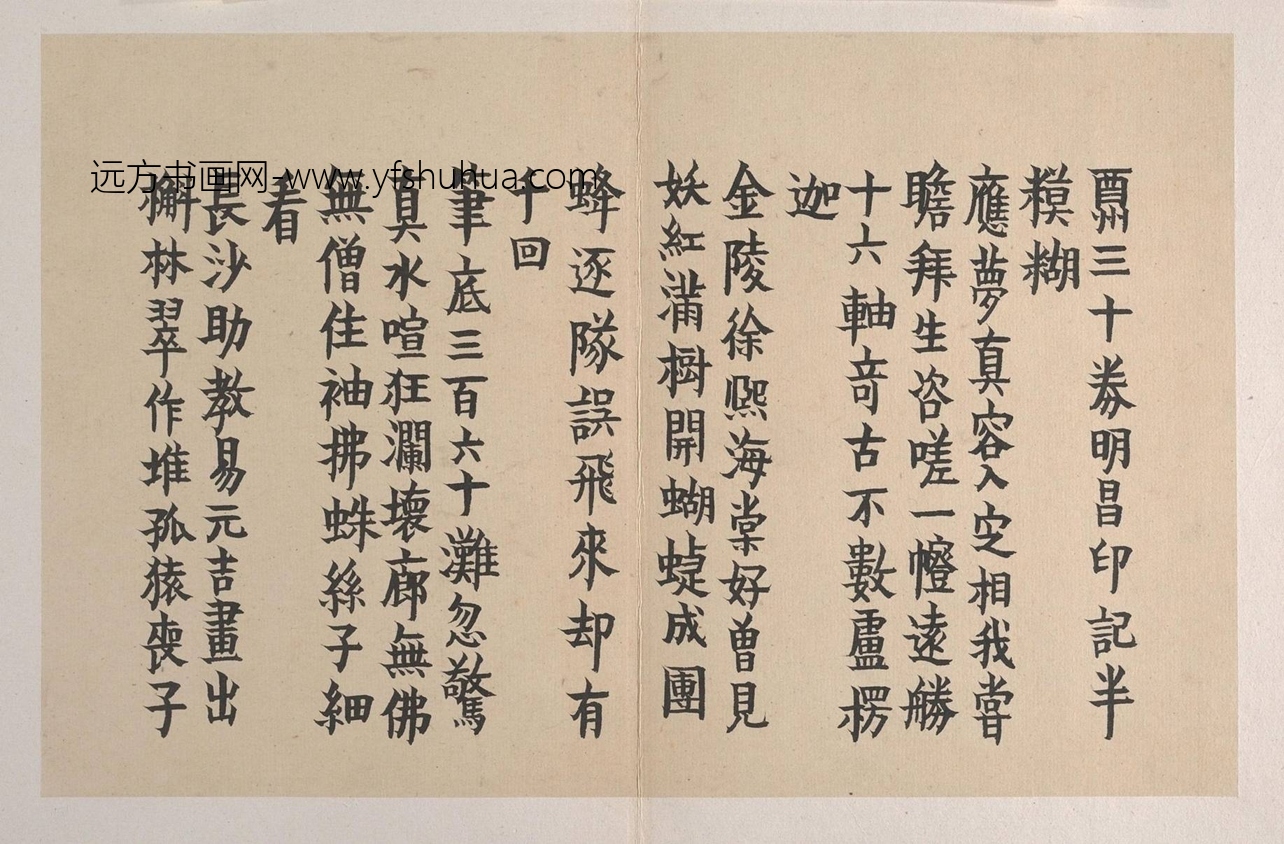 远方书画网-www.yfshuhua.com
三十券明昌印記半
糢糊
應夢真容入定相我嘗
瞻拜生咨嗟一遠勝
十六軸竒古不數盧楞
迦
金陵徐熙海棠好曽見
妖紅滿樹開蝴蜨成團
蜂逐隊誤飛來却有
千回
筆底三百六十灘忽驚
真水喧狂瀾壞廊無佛
無僧住袖拂蛛絲子細
看
長沙助教易元吉畫出
槲林翠作堆孤猿喪子